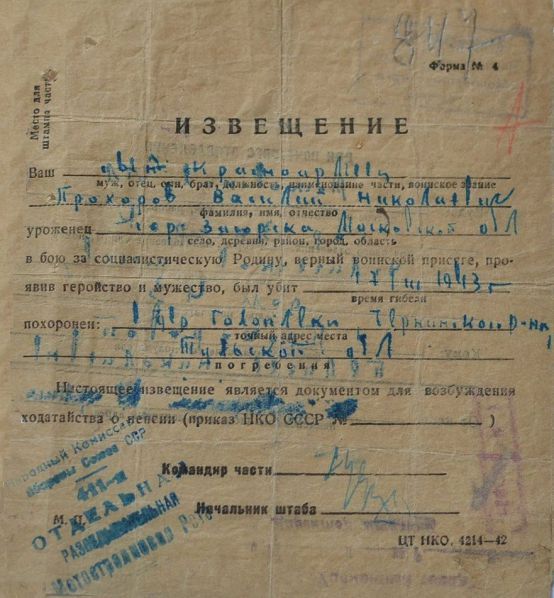 847
Форма № 4
Место для
штампа части
ИЗВЕЩЕНИЕ
Ваш сын красноармеец
муж, отец, сын, брат, должность, наименование части, воинское звание
Прохоров Василий Николаевич
фамилия, имя, отчество
уроженец гор. Загорска Московской обл
село, деревня, район, город, область
в бою за социалистическую Родину, верный воинской присяге, про-
явив геройство и мужество, был убит 1943 г
время гибели
похоронен: дер Чернского р-на
точный адрес места
Тульской обл
погребения
Настоящее извещение является документом для возбуждения
ходатайства о пенсии (приказ НКО СССР № )
Народный Комиссариат
Обороны Союза ССР
411-я
ОТДЕЛЬНАЯ
РАЗВЕДЫВАТЕЛЬНАЯ
Мотострелковая Рота
Командир части
Начальник штаба
М. П.
ЦТ НКО. 4214—42